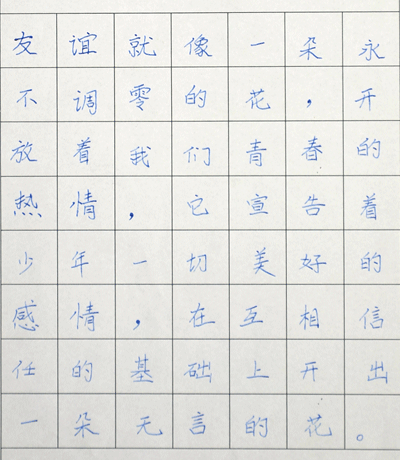 友谊就像一朵永
不调零的花，开
放着我们青春的
热情，它宣告着
少年一切美好的
感情，在互相信
任的基础上开出
一朵无言的花。